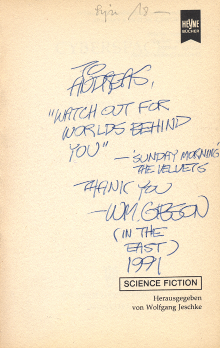 18—
HEYNE
BÜCHER
TO
ANDREAS,
"WATCH OUT FOR
WORLDS BEHIND
YOU"
— 'SUNDAY MORNING'
THE VELVETS
THANK YOU
— WM. GIBSON
(IN THE
EAST)
1991
SCIENCE FICTION
Herausgegeben
von Wolfgang Jeschke